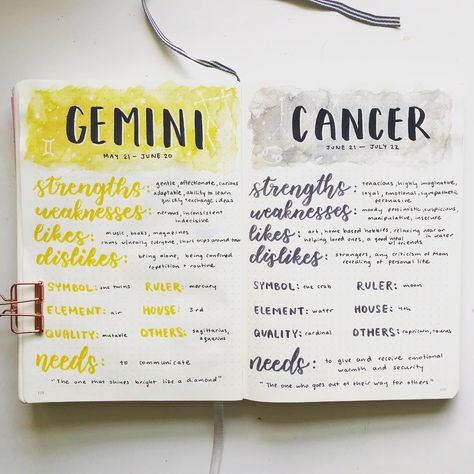 GEMINI
MAY 21 - JUNE 20
strengths: gentle, affectionate, curious
adaptable, ability to learn
quickly & exchange ideas
weaknesses: nervous, inconsistent
indecisive
likes: music, books, magazines
chats w/ nearly everyone, short trips around town
dislikes: being alone, being confined
repetition + routine
SYMBOL: the twins RULER: mercury
ELEMENT: air HOUSE: 3rd
QUALITY: mutable OTHERS: sagittarius,
aquarius
needs: to communicate
"The one that shines bright like a diamond"
CANCER
JUNE 21 - JULY 22
strengths: tenacious, highly imaginative,
loyal, emotional, sympathetic
persuasive
weaknesses: moody, pessimistic, suspicious
manipulative, insecure
likes: art, home based hobbies, relaxing near or
helping loved ones, a good meal
w/ friends
dislikes: strangers, any criticism of Mom
revealing of personal life
SYMBOL: the crab RULER: moon
ELEMENT: water HOUSE: 4th
QUALITY: cardinal OTHERS: capricorn, taurus
needs: to give and receive emotional
warmth and security
"The one who goes out of their way for others"